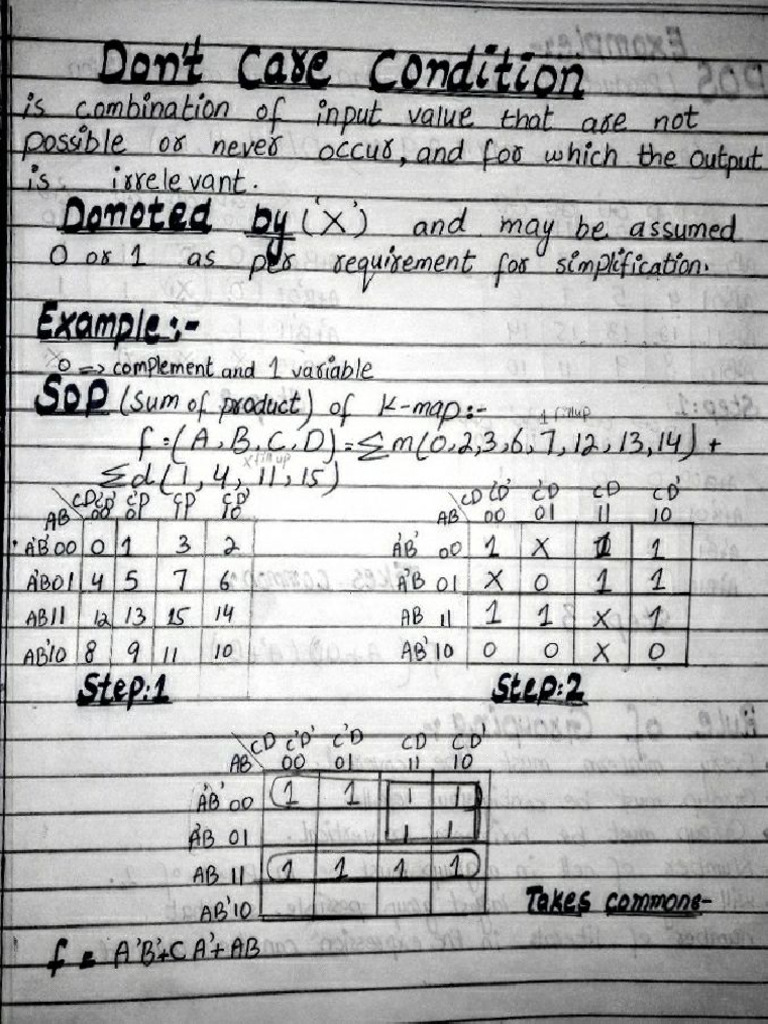 Don't Care Condition
is combination of input value that are not
possible or never occur, and for which the output
is irrelevant.
Donoted by ('X') and may be assumed
0 or 1 as per requirement for simplification.
Example:-
0 => complement and 1 variable
SOP (sum of product) of K-map:-
1 fillup
f=(A,B,C,D)=Σm(0,2,3,6,7,12,13,14)+
x fillup
Σd(1,4,11,15)
CD C'D' C'D CD CD'
AB 00 01 11 10
A'B' 00 0 1 3 2
A'B 01 4 5 7 6
AB 11 12 13 15 14
AB' 10 8 9 11 10
Step:1
CD C'D' C'D CD CD'
AB 00 01 11 10
A'B' 00 1 X 1 1
A'B 01 X 0 1 1
AB 11 1 1 X 1
AB' 10 0 0 X 0
Step:2
CD C'D' C'D CD CD'
AB 00 01 11 10
A'B' 00 1 1 1 1
A'B 01 1 1
AB 11 1 1 1 1
AB' 10
Takes common:-
f = A'B'+CA'+AB